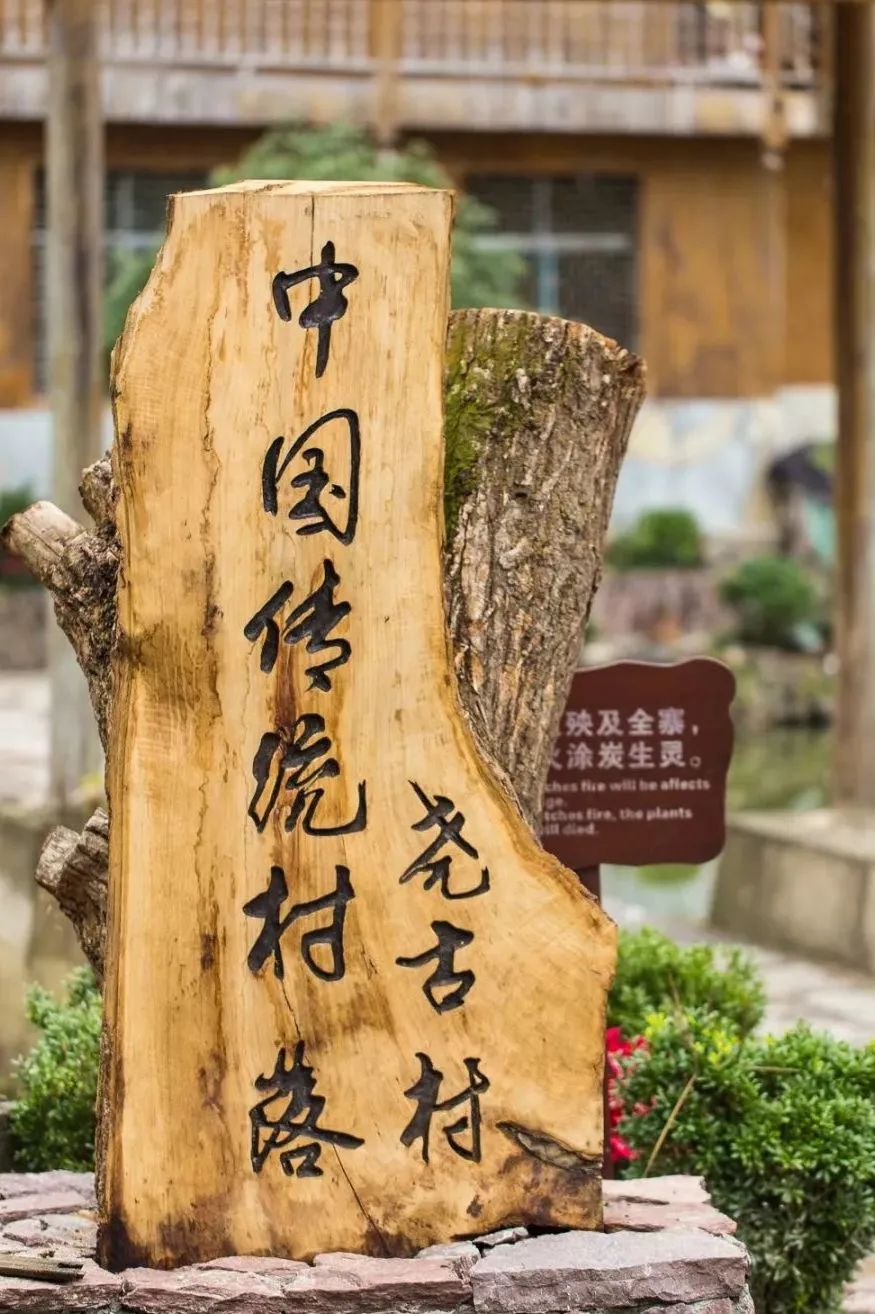 中国传统村落
尧古村
殃及全寨，
涂炭生灵。
tches fire will be affects
ge.
tches fire, the plants
ill died.